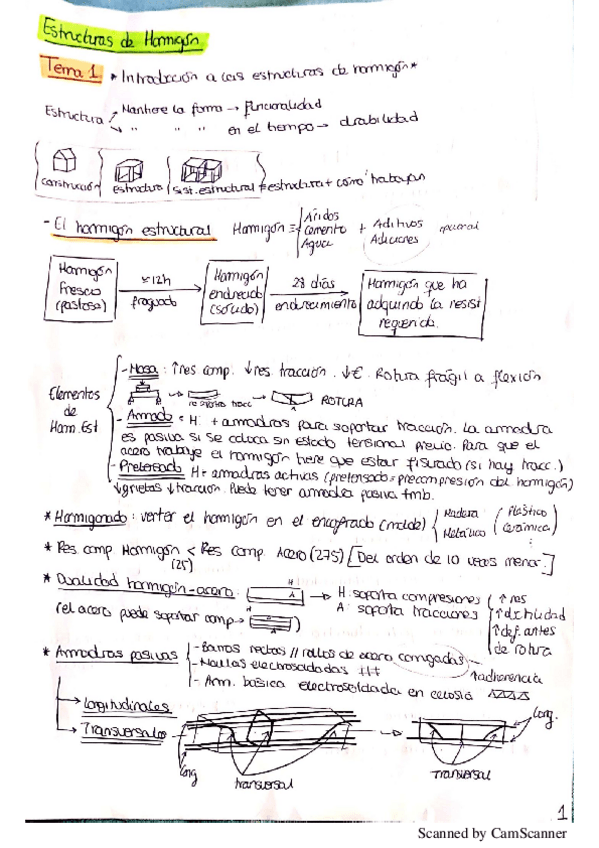 Estructuras de Hormigón
Tema 1 * Introducción a las estructuras de hormigón *
Estructura Mantiene la forma → funcionalidad
" " " en el tiempo → durabilidad
construcción estructura sist. estructural = estructura + cómo trabajan
- El hormigón estructural Hormigón = Áridos
Cemento
Agua + Aditivos
Adiciones opcional
Hormigón
fresco
(pastoso)
≈12h
fraguado
Hormigón
endurecido
(sólido)
28 días
endurecimiento
Hormigón que ha
adquirido la resist
requerida.
Elementos
de
Horm. Est
- Masa : ↑res comp. ↓res tracción. ↓€. Rotura frágil a flexión
tracc → ROTURA
- Armado : H. + armaduras para soportar tracción. La armadura
es pasiva si se coloca sin estado tensional previo. Para que el
acero trabaje el hormigón tiene que estar fisurado (si hay tracc.)
- Pretensado H + armaduras activas (pretensado = precompresión del hormigón)
↓grietas ↓tracción. Puede tener armadura pasiva tmb.
* Hormigonado : verter el hormigón en el encofrado (molde) Madera
Metálico
Plástico
Cerámica
* Res comp. Hormigón < Res comp. Acero (275) [Del orden de 10 veces menor.]
(25)
* Dualidad hormigón-acero: H
A → H: soporta compresiones
A: soporta tracciones
↑res
↑ductilidad
↑def. antes
de rotura
(el acero puede soportar comp → )
* Armaduras pasivas - Barras rectas // rollos de acero corrugadas
- Mallas electrosoldadas ##
- Arm. básica electrosoldada en celosía
↑adherencia
→ Longitudinales
→ Transversales
long
transversal
long.
transversal
1
Scanned by CamScanner